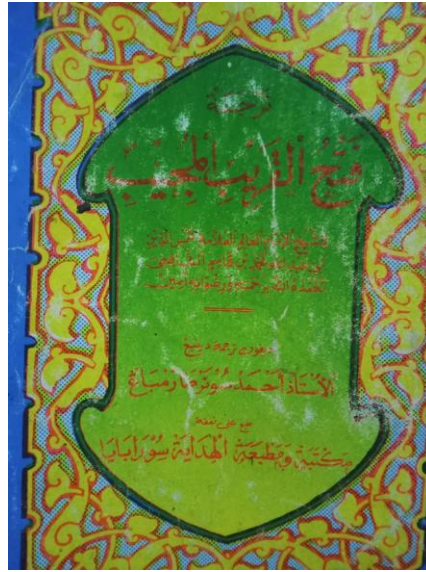 ترجمة
فتح القريب المجيب
للشيخ الإمام العالم العلامة شمس الدين
أبي عبد الله محمد بن قاسم الشافعي
تغمده الله برحمته ورضوانه آمين
الأستاذ أحمد سونرطا رمباغ
طبع على نفقة
مكتبة ومطبعة الهداية سورابايا